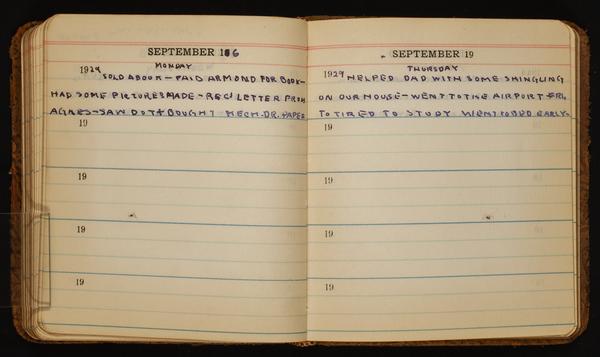 SEPTEMBER 16
MONDAY
1929 SOLD A BOOK - PAID ARMOND FOR BOOK -
HAD SOME PICTURES MADE - REC'D LETTER FROM
AGNES - SAW DOT & BOUGHT MECH. DR. PAPER
19
19
19
19
SEPTEMBER 19
THURSDAY
1929 HELPED DAD WITH SOME SHINGLING
ON OUR HOUSE - WENT TO THE AIRPORT
TO TIRED TO STUDY WENT TO BED EARLY.
19
19
19
19